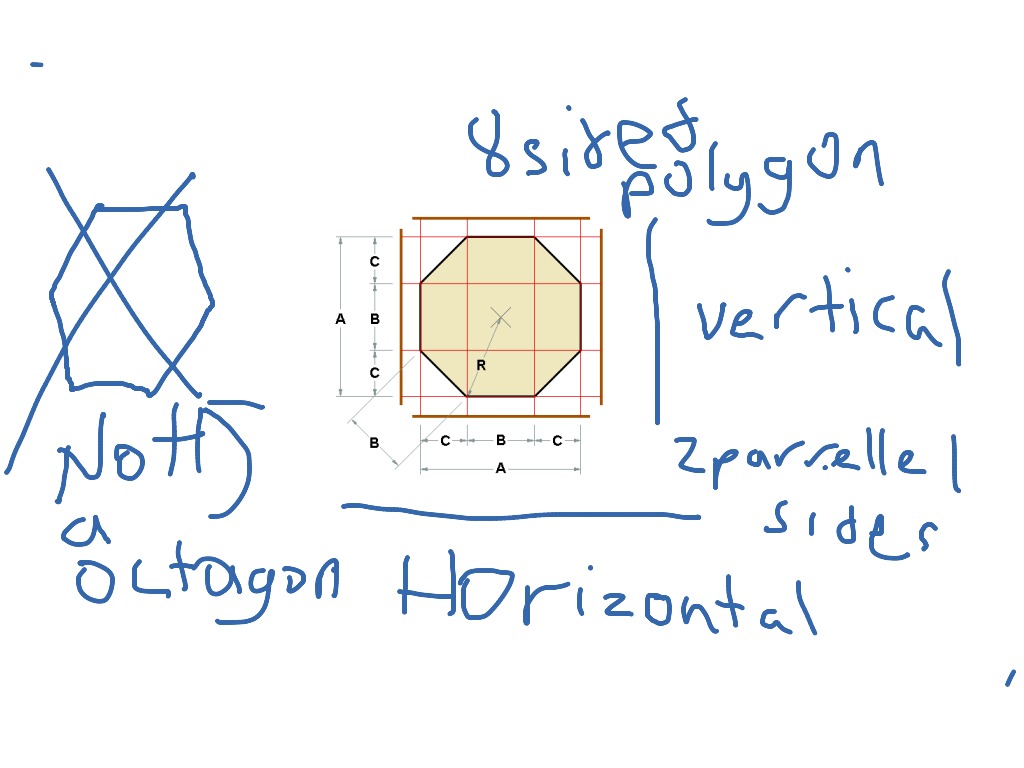 8sided
polygon
vertical
C
A B
R
C
B
C B C
A
2parrellel
sides
Not
a
octagon
Horizontal